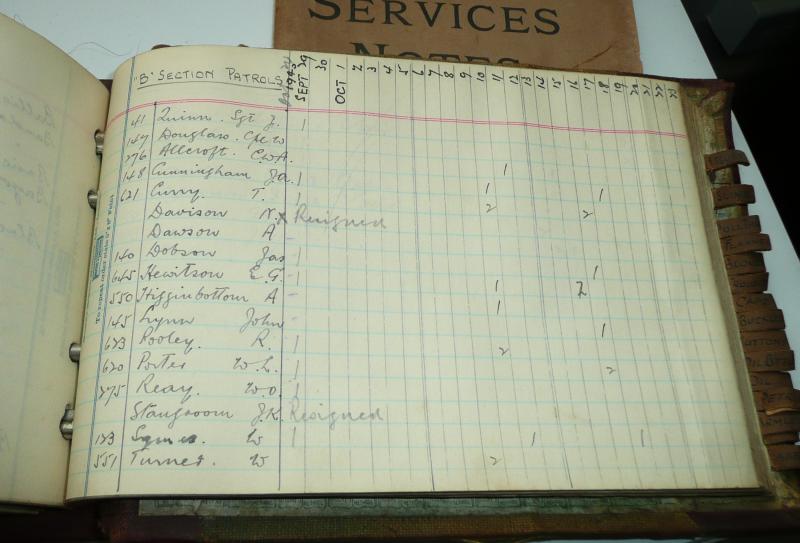 SERVICES
NOTES
"B" SECTION PATROLS 1940 SEPT 29 30 OCT 1 2 3 4 5 6 7 8 9 10 11 12 13 14 15 16 17 18 19 20 21 22 23
41 Quinn. Sgt J. 1
147 Douglass. Cpl W
276 Allcroft. C.W.A.
148 Cunningham Ja. 1 1
621 Curry. T. 1 1 1
Davison N. x Resigned 2 2
Dawson A -
140 Dobson Jas 1
645 Hewitson E.G. 1 1
550 Higginbottom A - 1 2
145 Lynn John 1
673 Pooley. R. 1 1
620 Porter W.L. 1 2
275 Reay. W.O. 1 2
Stangroom J.K. Resigned
123 Symes. W 1 1 1
551 Turner. W 2